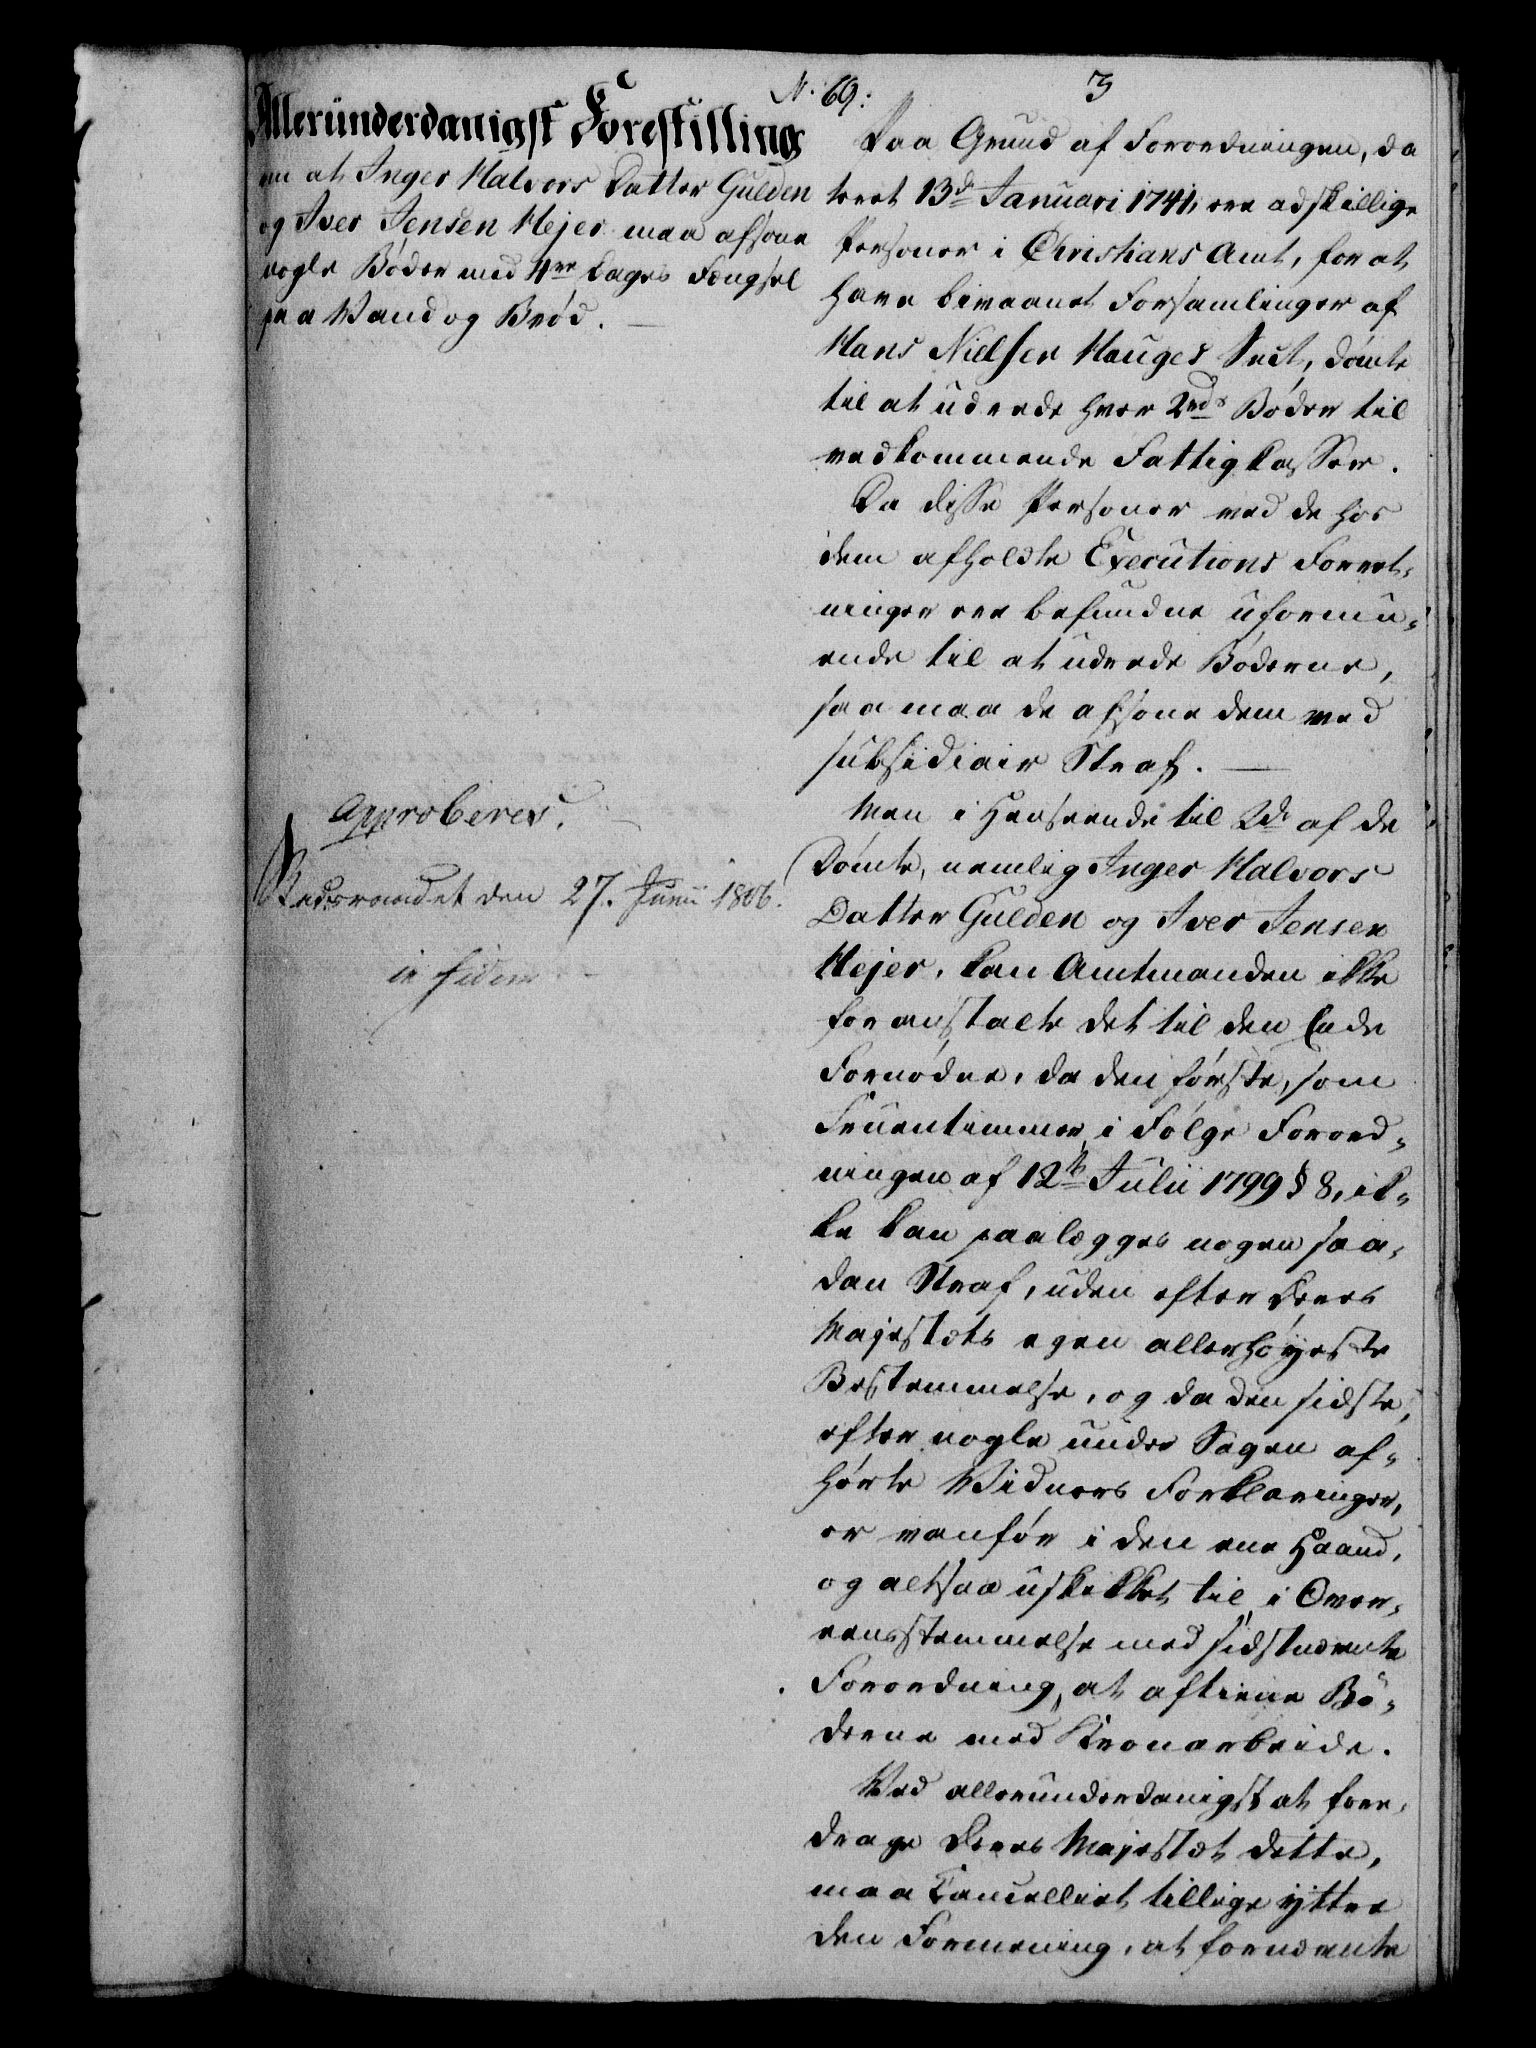 N. 69:
3
Allerunderdanigst Forestilling
om at Inger Halvors Datter Gulden
og Iver Jensen Hejer maa afsone
nogle Bøder med 4re Dages Fængsel
paa Vand og Brød.
Approberes.
Rendsborg den 27. Junii 1806.
in fidem
Paa Grund af Forordningen, da
teret 13de Januari 1741, ere adskillige
Personer i Christians Amt, for at
have bivaanet Forsamlinger af
Hans Nielsen Hauges Sect, dömte
til at udrede hver 2rds Bøder til
vedkommende Fattigkasser.
Da disse Personer ved de hos
dem afholdte Executions Forret-
ninger ere befundne uformu-
ende til at udrede Bøderne,
saa maa de afsone dem med
subsidiair Straf.
Men i Henseende til 2de af de
Dømte, nemlig Inger Halvors
Datter Gulden og Iver Jensen
Hejer, kan Amtmanden ikke
foranstalte det til den Ende
Fornødne, da den første, som
Fruentimmer, i Følge Forord-
ningen af 12te Julii 1799 § 8, ik-
ke kan paalægges nogen saa-
dan Straf, uden efter Deres
Majestæts egen allerhøyeste
Bestemmelse, og da den sidste,
efter nogle under Sagen af-
hørte Vidners Forklaringer,
er vanför i den ene Haand,
og altsaa uskikket til, i Over-
eensstemmelse med sidstnævnte
Forordning, at aftiene Bö-
derne med Kronarbeide.
Ved allerunderdanigst at fore-
drage Deres Majestæt dette,
maa Cancelliet tillige yttre
den Formening, at fornævnte